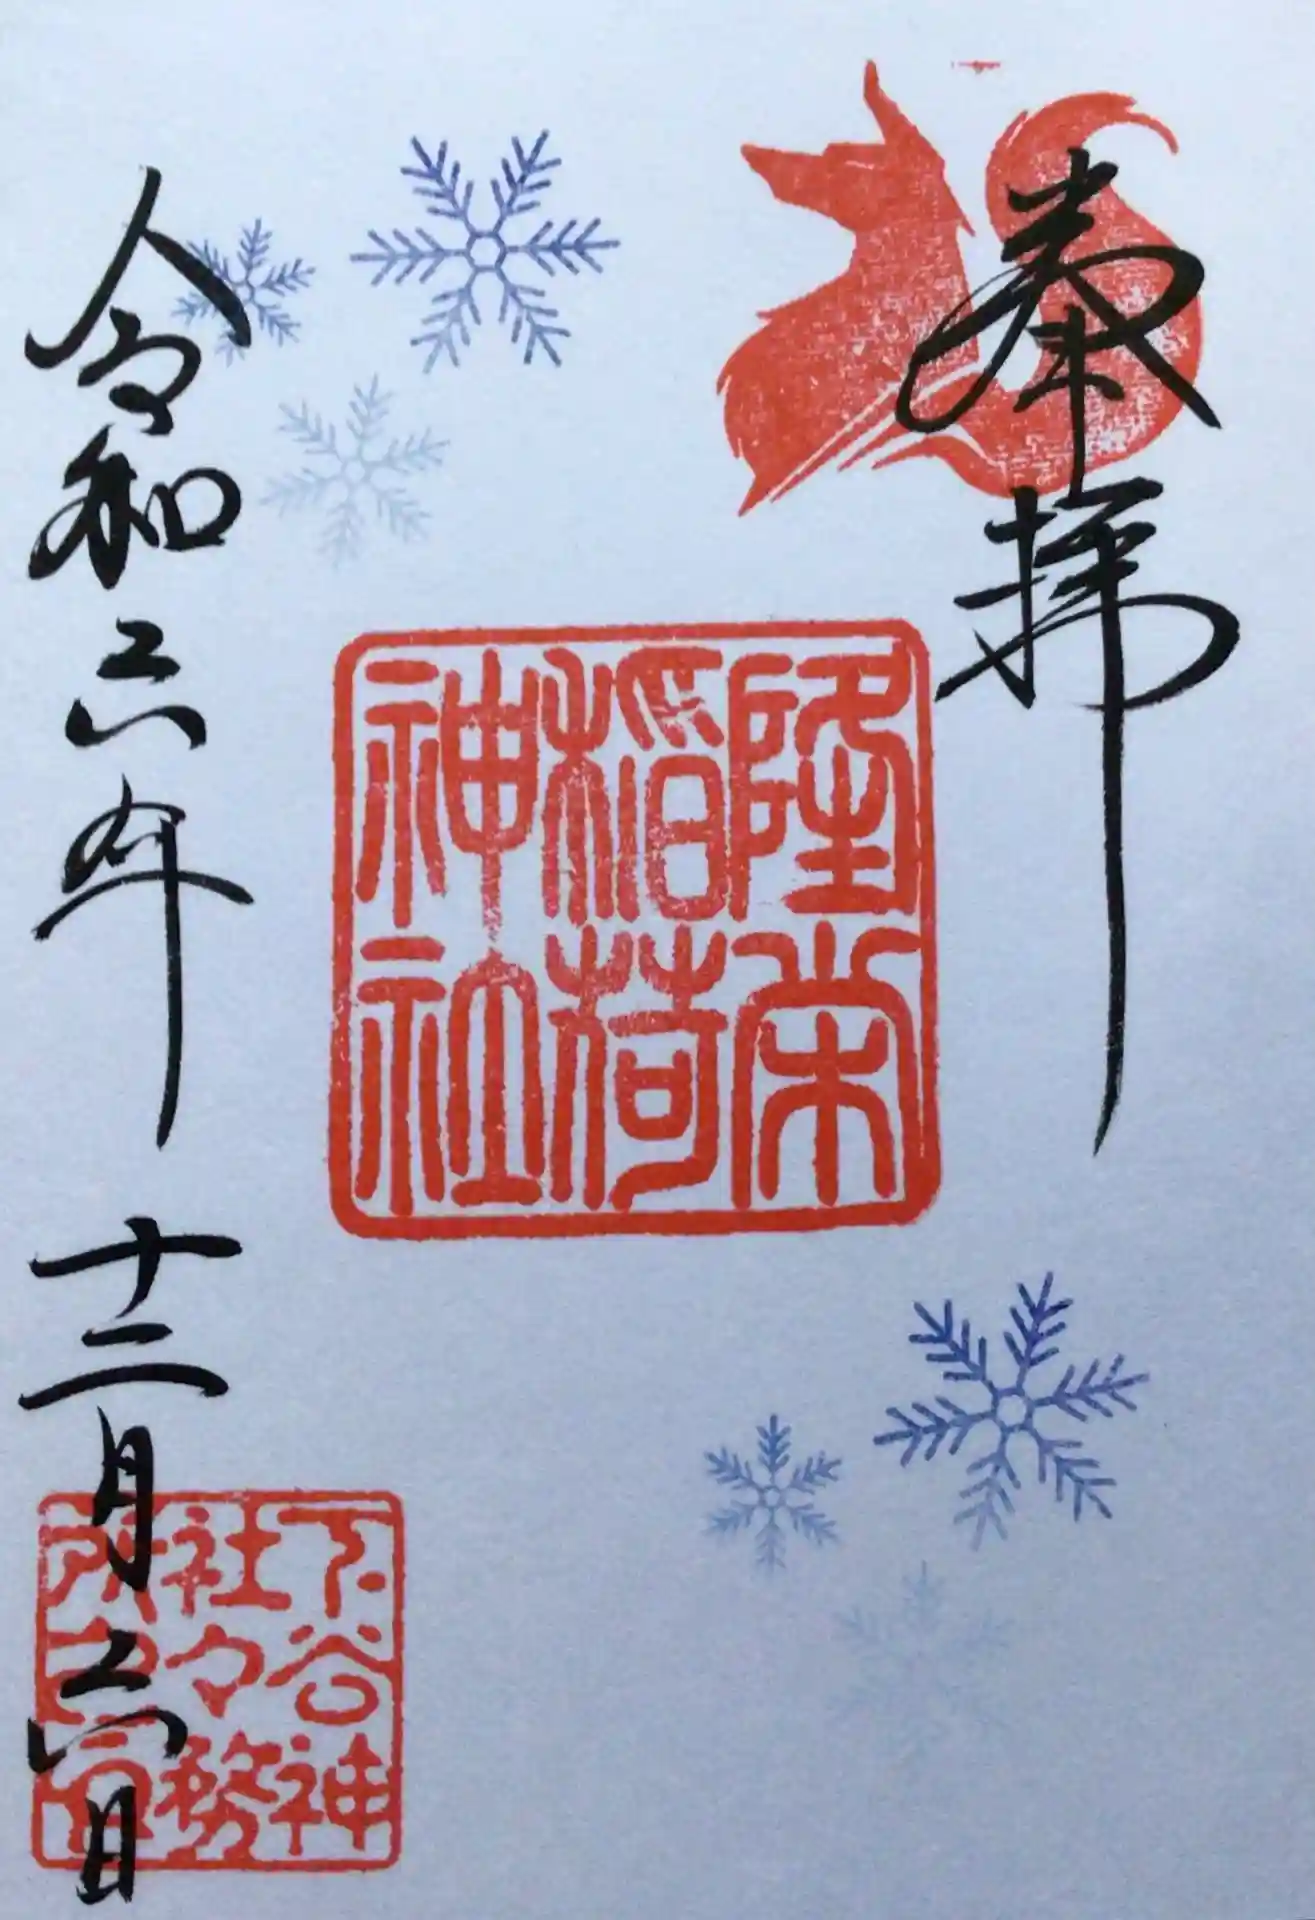 奉拝
隆栄
稲荷
神社
令和六年十二月六日
下谷神
社々務
所之印